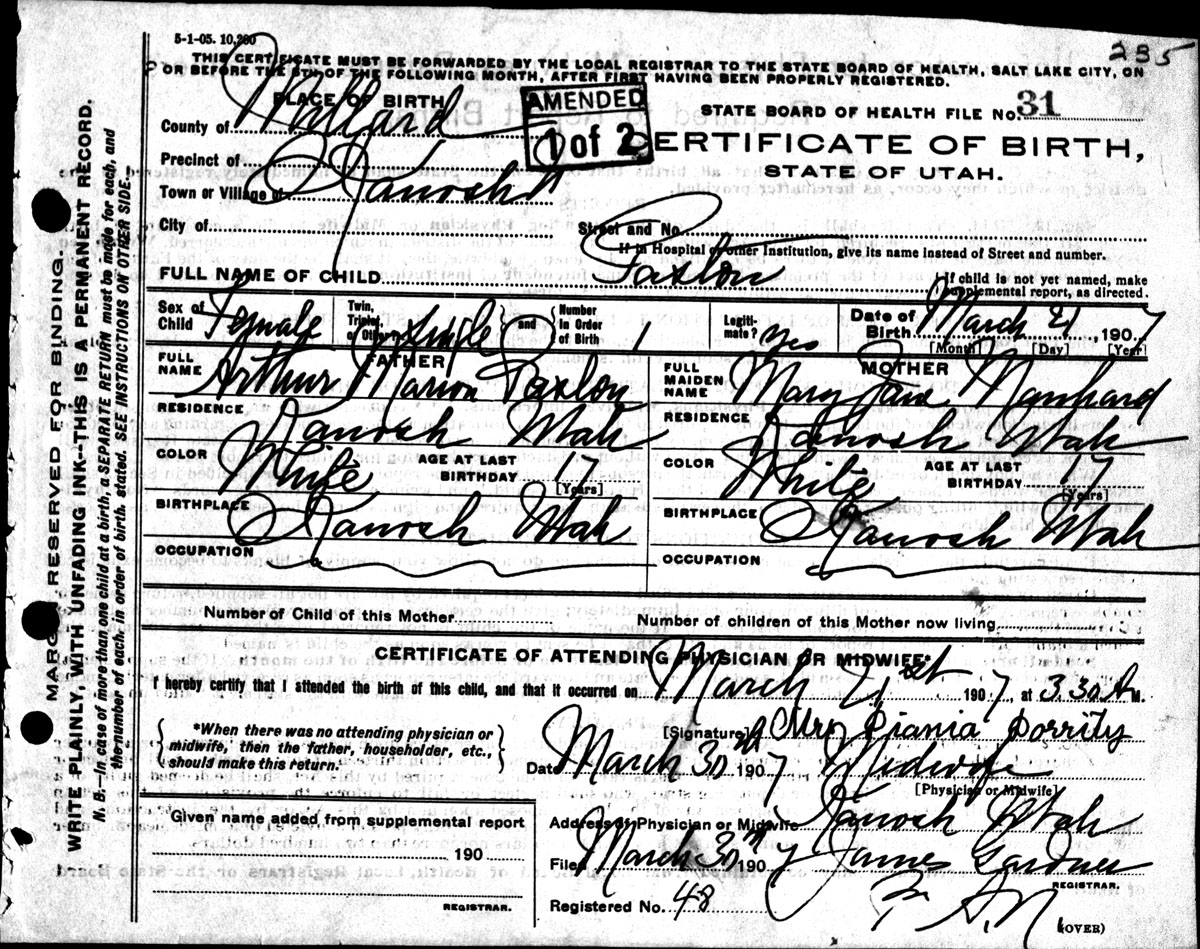 5-1-05. 10,200
235
THIS CERTIFICATE MUST BE FORWARDED BY THE LOCAL REGISTRAR TO THE STATE BOARD OF HEALTH, SALT LAKE CITY, ON
OR BEFORE THE 5TH OF THE FOLLOWING MONTH, AFTER FIRST HAVING BEEN PROPERLY REGISTERED.
PLACE OF BIRTH
AMENDED
1 of 2
STATE BOARD OF HEALTH FILE No. 31
County of Millard
CERTIFICATE OF BIRTH,
STATE OF UTAH.
Precinct of "
Town or Village of Kanosh
City of
Street and No.
If in Hospital or other Institution, give its name instead of Street and number.
FULL NAME OF CHILD Paxton
If child is not yet named, make supplemental report, as directed.
Sex of Child Female
Twin, Triplet, or Other Single and Number in Order of Birth 1
Legitimate? Yes
Date of Birth March 21, 1907
[Month] [Day] [Year]
FATHER
FULL NAME Arthur Marion Paxton
RESIDENCE Kanosh Utah
COLOR White AGE AT LAST BIRTHDAY 17
[Years]
BIRTHPLACE Kanosh Utah
OCCUPATION
MOTHER
FULL MAIDEN NAME Mary Jane Manhard
RESIDENCE Kanosh Utah
COLOR White AGE AT LAST BIRTHDAY 17
[Years]
BIRTHPLACE Kanosh Utah
OCCUPATION
Number of Child of this Mother
Number of children of this Mother now living
CERTIFICATE OF ATTENDING PHYSICIAN OR MIDWIFE*
I hereby certify that I attended the birth of this child, and that it occurred on March 21st 1907, at 3.30 A M.
*When there was no attending physician or
midwife, then the father, householder, etc.,
should make this return.
[Signature] Mrs Diania Dorrity
Date March 30th 1907 Midwife
[Physician or Midwife]
Address of Physician or Midwife Kanosh Utah
Filed March 30th 1907 James Gardner
REGISTRAR.
Registered No. 48
(OVER)
Given name added from supplemental report
190
REGISTRAR.
MARGIN RESERVED FOR BINDING.
WRITE PLAINLY, WITH UNFADING INK—THIS IS A PERMANENT RECORD.
N. B.—In case of more than one child at a birth, a SEPARATE RETURN must be made for each, and
the number of each, in order of birth, stated. SEE INSTRUCTIONS ON OTHER SIDE.